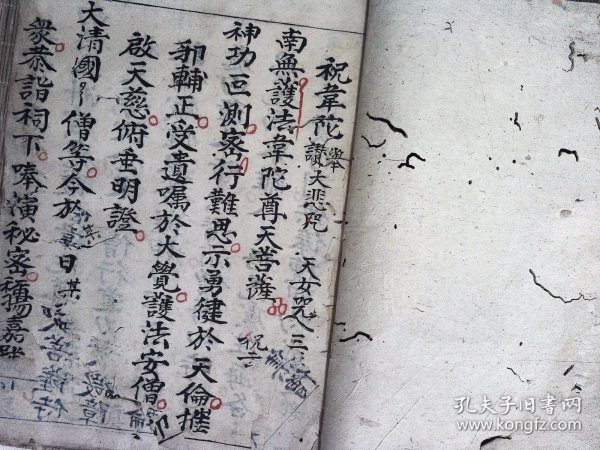 祝韋陀 舉讚 大悲咒 天女咒 三
南無護法韋陀尊天菩薩
神功叵測密行難思示勇健於天倫摧
邪輔正受遺囑於大覺護法安僧
啟天慈俯垂明證
大清國 僧等今於 某 日 某
眾恭詣祠下唪演秘密稱揚嘉
孔夫子旧书网
www.kongfz.com